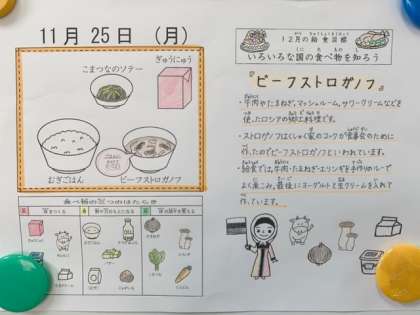 11月 25日 (月)
ぎゅうにゅう
こまつなのソテー
むぎごはん
ビーフストロガノフ
食べ物の三つのはたらき
12月の給食目標
いろいろな国の食べ物を知ろう
『ビーフストロガノフ』
・牛肉やたまねぎ、マッシュルーム、サワークリームなどを
使ったロシアの郷土料理です。
・ストロガノフはくしゃく家のコックが食事会のために
作ったのでビーフストロガノフといわれています。
・給食では、牛肉・たまねぎ・エリンギを手作りのルーで
よく煮こみ、最後にヨーグルトと生クリームを入れて
作っています。